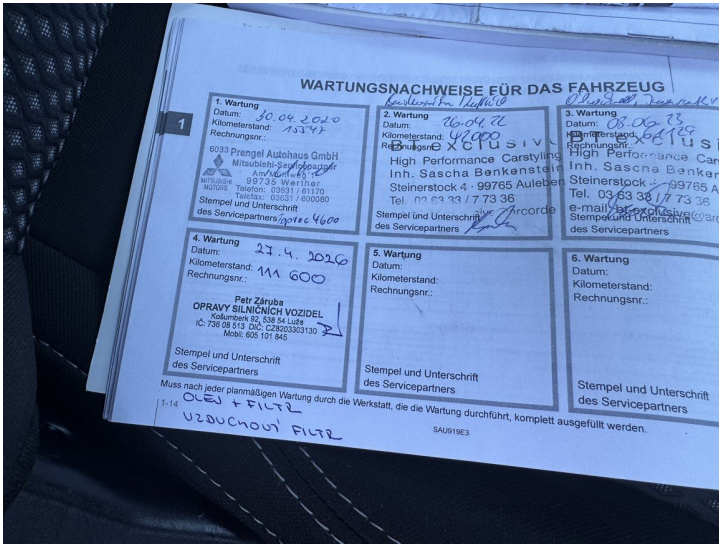 WARTUNGSNACHWEISE FÜR DAS FAHRZEUG
1
1. Wartung
Datum: 30.04.2020
Kilometerstand: 15547
Rechnungsnr.:
6033 Prengel Autohaus GmbH
Mitsubishi-Servicepartner
Am Mühlweg
99735 Werther
Telefon: 03631 / 61170
Telefax: 03631 / 600080
MITSUBISHI
MOTORS
Stempel und Unterschrift
des Servicepartners Toptec 4600
2. Wartung
Datum: 26.04.22
Kilometerstand: 42000
Rechnungsnr.:
BT exclusiv
High Performance Carstyling
Inh. Sascha Benkenstein
Steinerstock 4 · 99765 Auleben
Tel. 03 63 33 / 7 73 36
Stempel und Unterschrift
des Servicepartners
3. Wartung
Datum: 08.06.23
Kilometerstand: 61129
Rechnungsnr.:
BT exclusi
High Performance Car
Inh. Sascha Benken
Steinerstock 4 · 99765 A
Tel. 03 63 33 / 7 73 36
e-mail
Stempel und Unterschrift
des Servicepartners
4. Wartung
Datum: 27.4. 2026
Kilometerstand: 111 600
Rechnungsnr.:
Petr Záruba
OPRAVY SILNIČNÍCH VOZIDEL
Košumberk 92, 538 54 Luže
IČ: 736 08 513 DIČ: CZ8203303130
Mobil: 605 101 845
Stempel und Unterschrift
des Servicepartners
5. Wartung
Datum:
Kilometerstand:
Rechnungsnr.:
Stempel und Unterschrift
des Servicepartners
6. Wartung
Datum:
Kilometerstand:
Rechnungsnr.:
Stempel und Unterschrift
des Servicepartners
Muss nach jeder planmäßigen Wartung durch die Werkstatt, die die Wartung durchführt, komplett ausgefüllt werden.
1-14
OLEJ + FILTR
VZDUCHOVÍ FILTR
SAU919E3